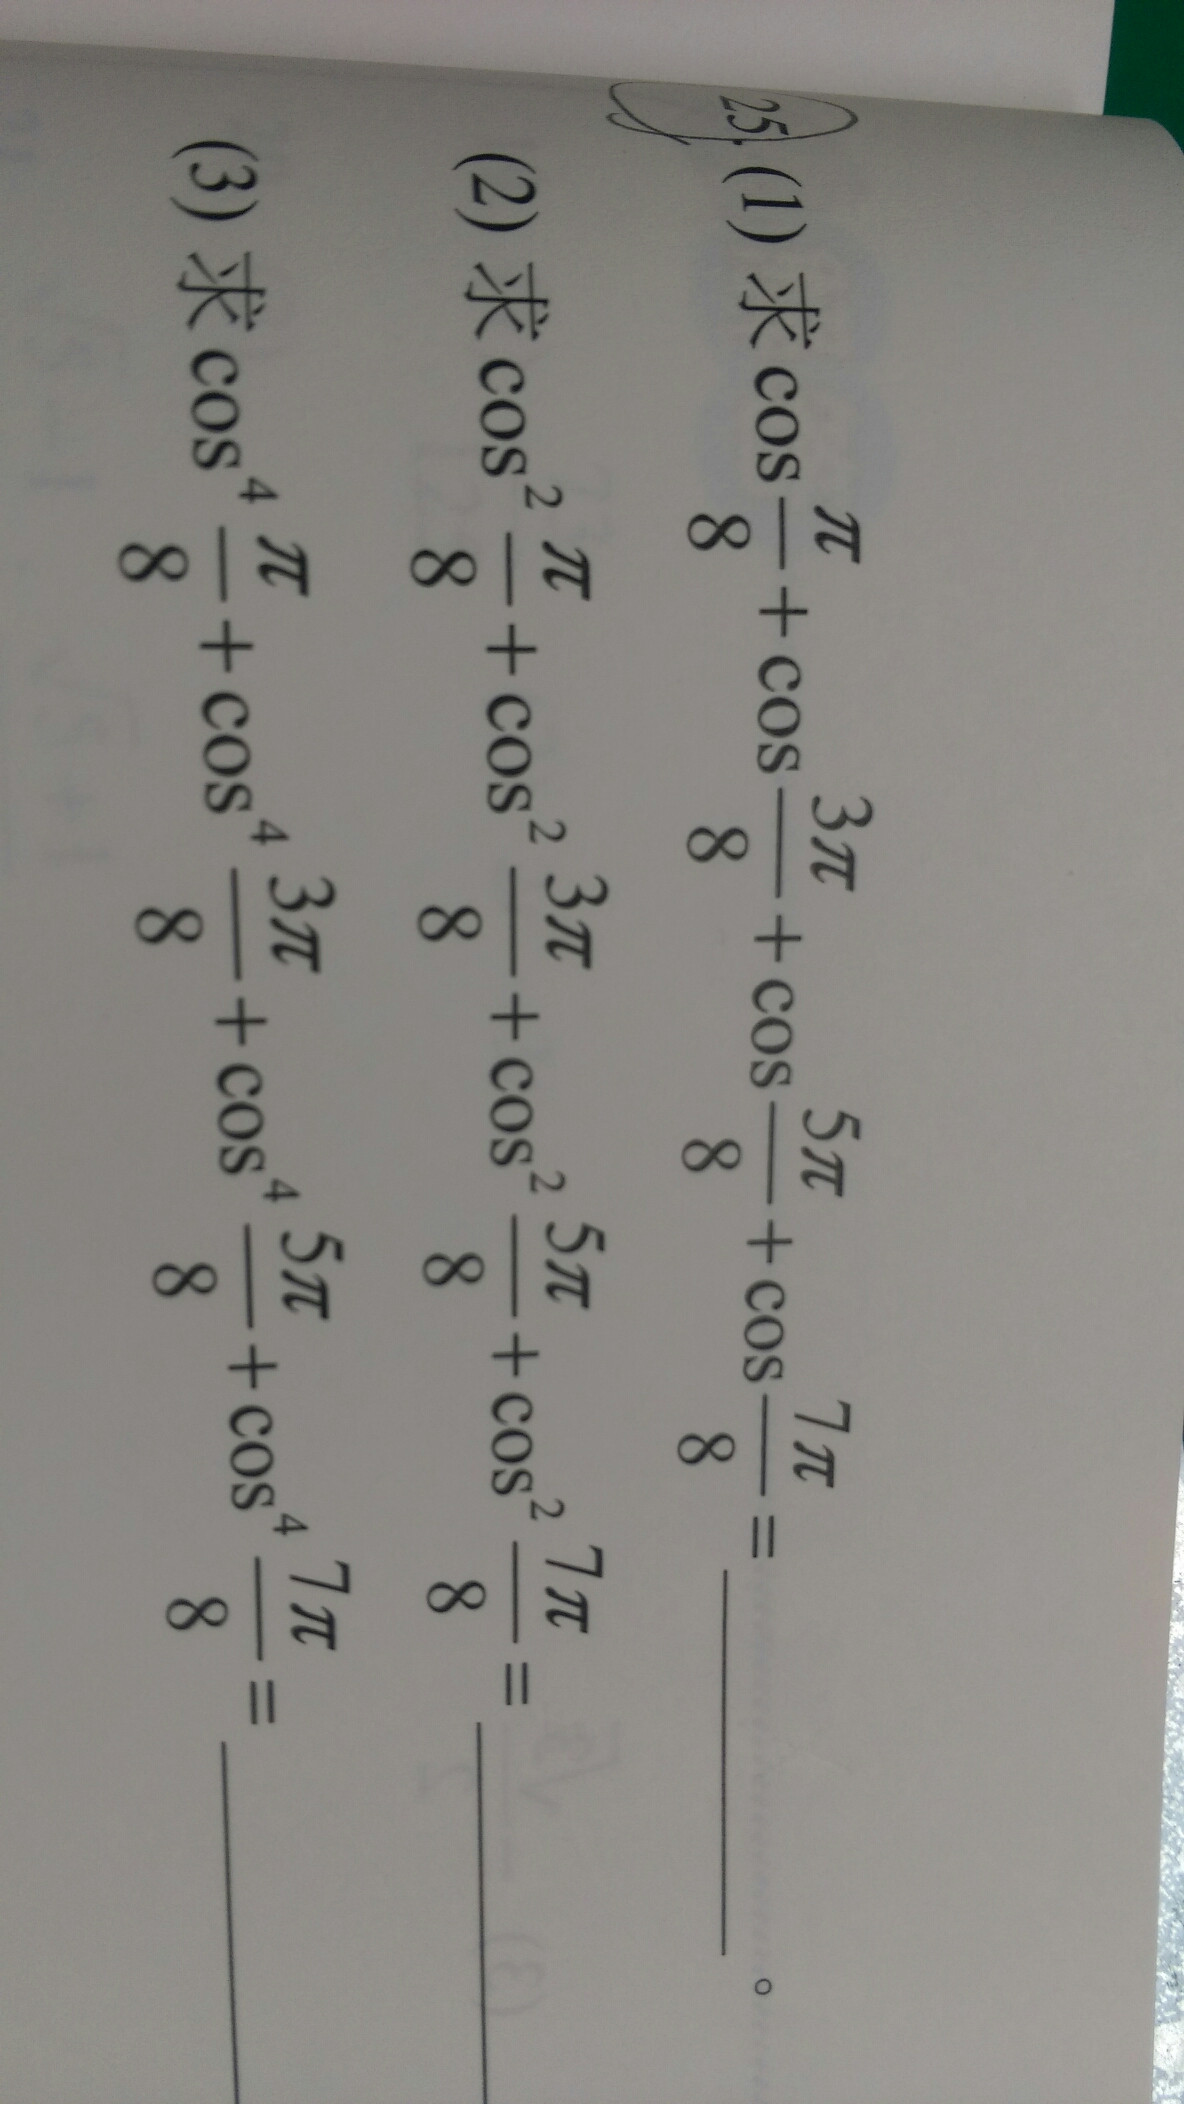 25. (1) 求 cos π/8 + cos 3π/8 + cos 5π/8 + cos 7π/8 = ________ 。
(2) 求 cos² π/8 + cos² 3π/8 + cos² 5π/8 + cos² 7π/8 = ________
(3) 求 cos⁴ π/8 + cos⁴ 3π/8 + cos⁴ 5π/8 + cos⁴ 7π/8 = ________